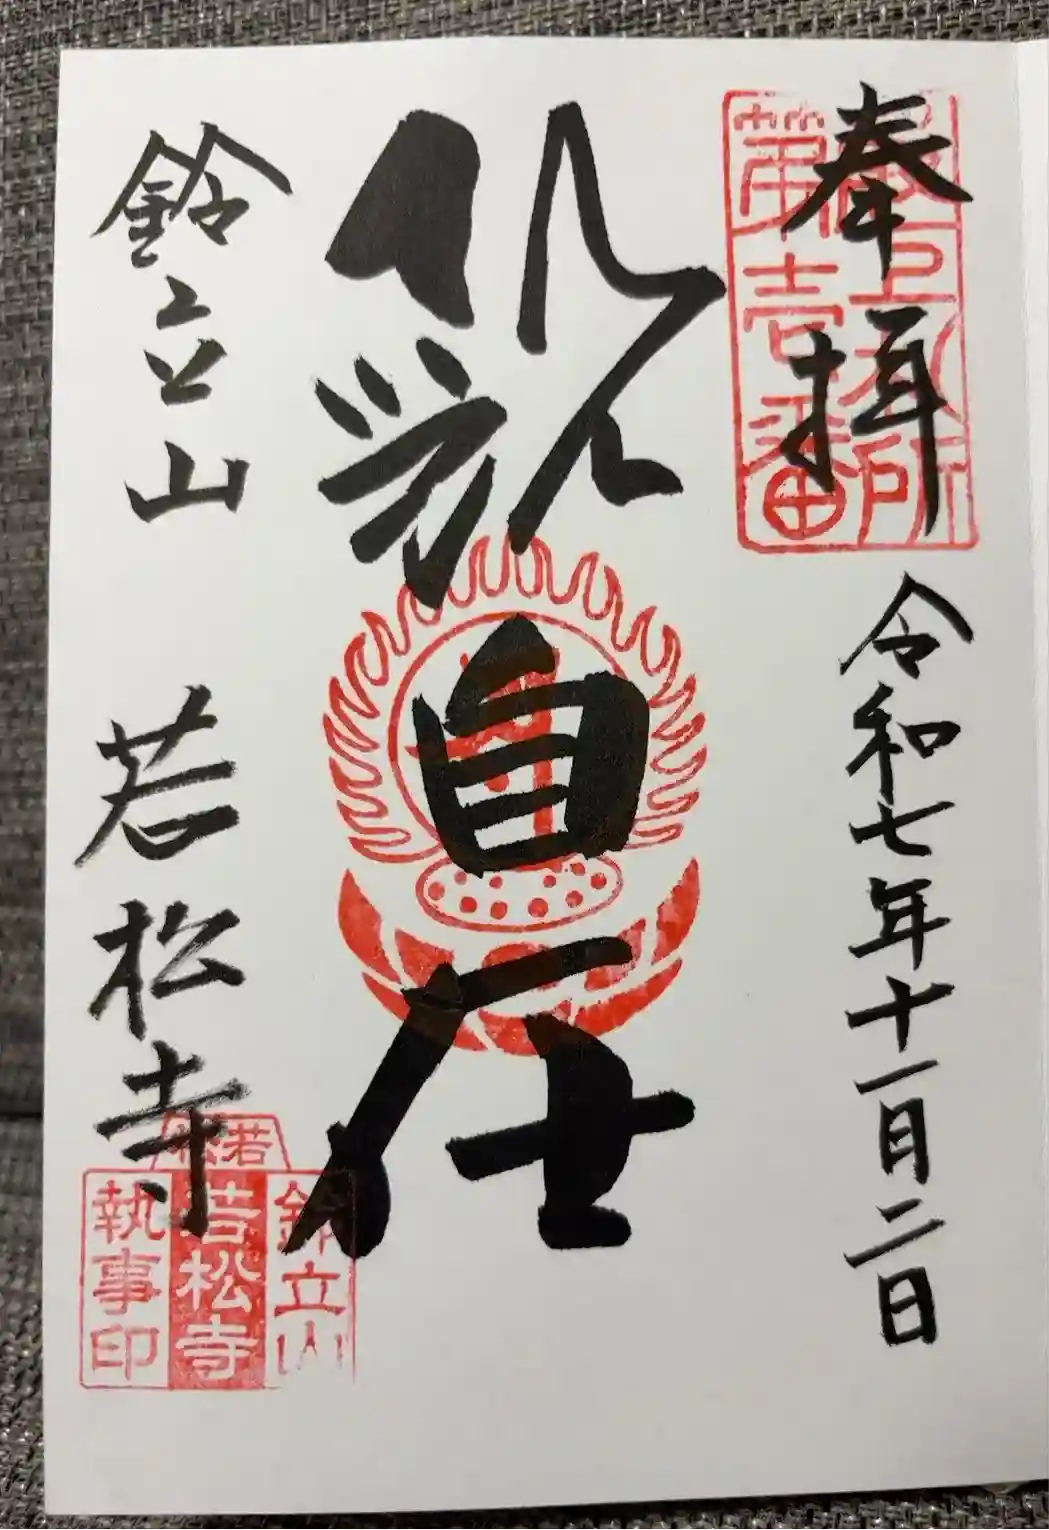 奉拝
令和七年十一月二日
最上札所
第壱番
自在
鈴立山 若松寺
若松
鈴立山
若松寺
執事印